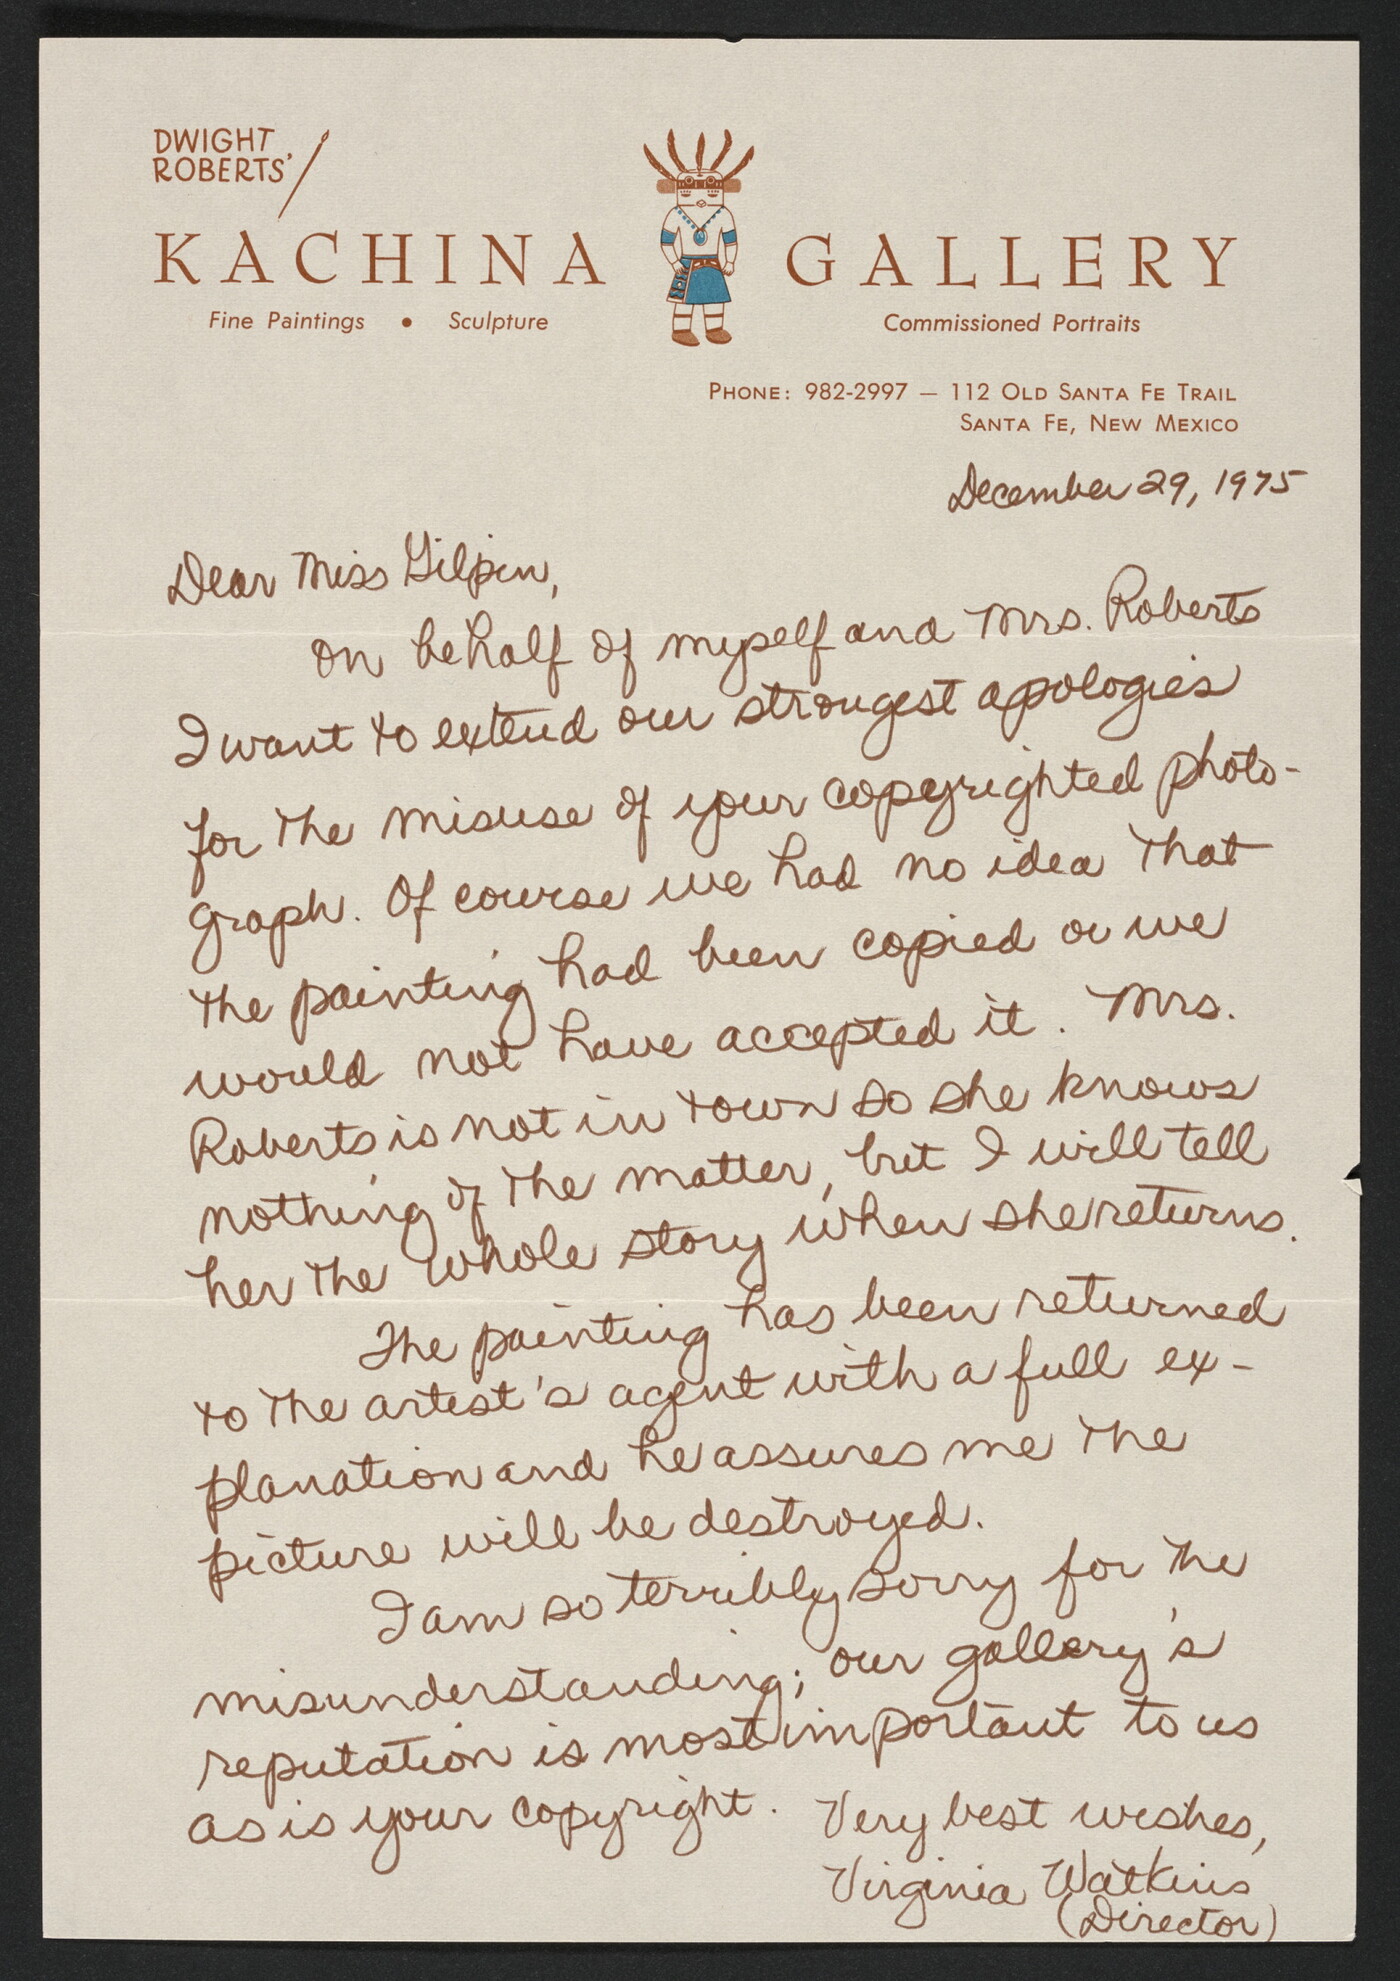 DWIGHT
ROBERTS'
KACHINA GALLERY
Fine Paintings • Sculpture Commissioned Portraits
PHONE: 982-2997 — 112 OLD SANTA FE TRAIL
SANTA FE, NEW MEXICO
December 29, 1975
Dear Miss Gilpin,
On behalf of myself and Mrs. Roberts
I want to extend our strongest apologies
for the misuse of your copyrighted photo-
graph. Of course we had no idea that
the painting had been copied or we
would not have accepted it. Mrs.
Roberts is not in town so she knows
nothing of the matter, but I will tell
her the whole story when she returns.
The painting has been returned
to the artist's agent with a full ex-
planation and he assures me the
picture will be destroyed.
I am so terribly sorry for the
misunderstanding; our gallery's
reputation is most important to us
as is your copyright. Very best wishes,
Virginia Watkins
(Director)